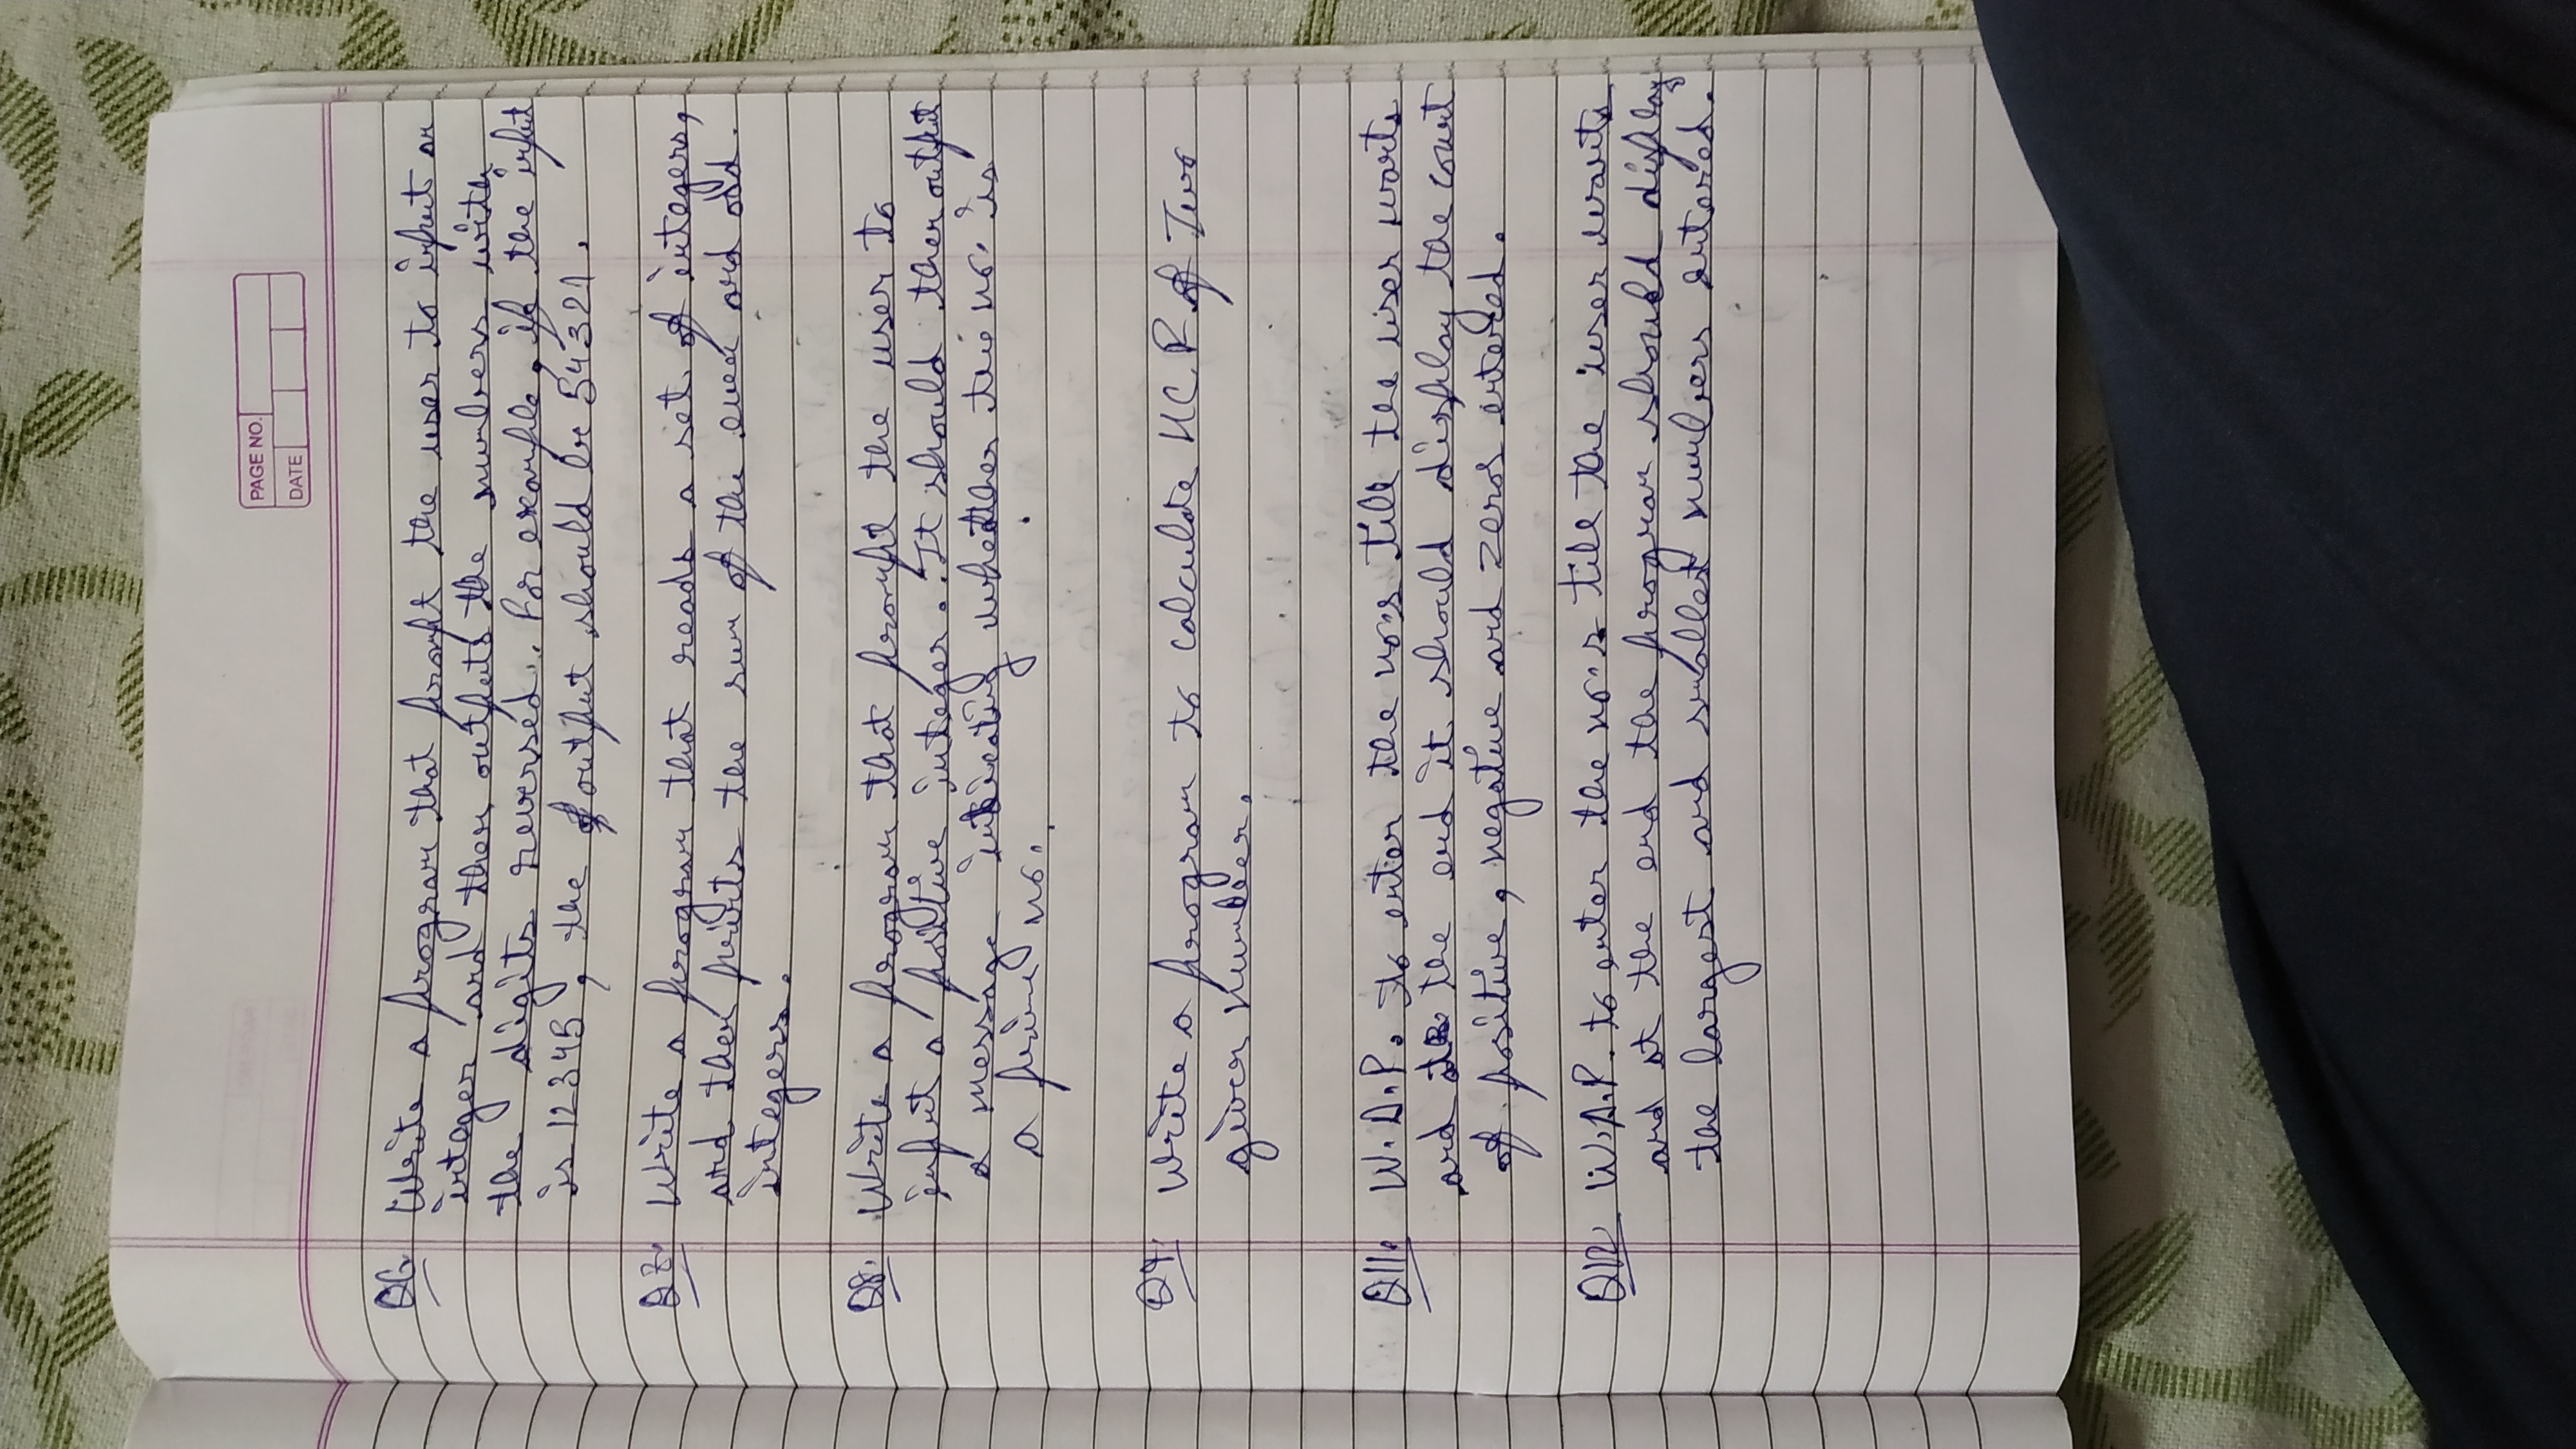 PAGE NO.
DATE
Q6 Write a program that prompt the user to input an
integer and then outputs the numbers with
the digits reversed. For example, if the input
is 12345, the output should be 54321.
Q7. Write a program that reads a set of integers,
and then prints the sum of the even and odd
integers.
Q8. Write a program that prompt the user to
input a positive integer. It should then output
a message indicating wheather the no. is
a prime no.
Q9. Write a program to calculate HCF of Two
given number.
Q11. W.A.P. to enter the no.s till the user wants
and at the end it should display the count
of positive, negative and zeros entered.
Q12 W.A.P. to enter the no.s till the user wants
and at the end the program should display
the largest and smallest numbers entered.